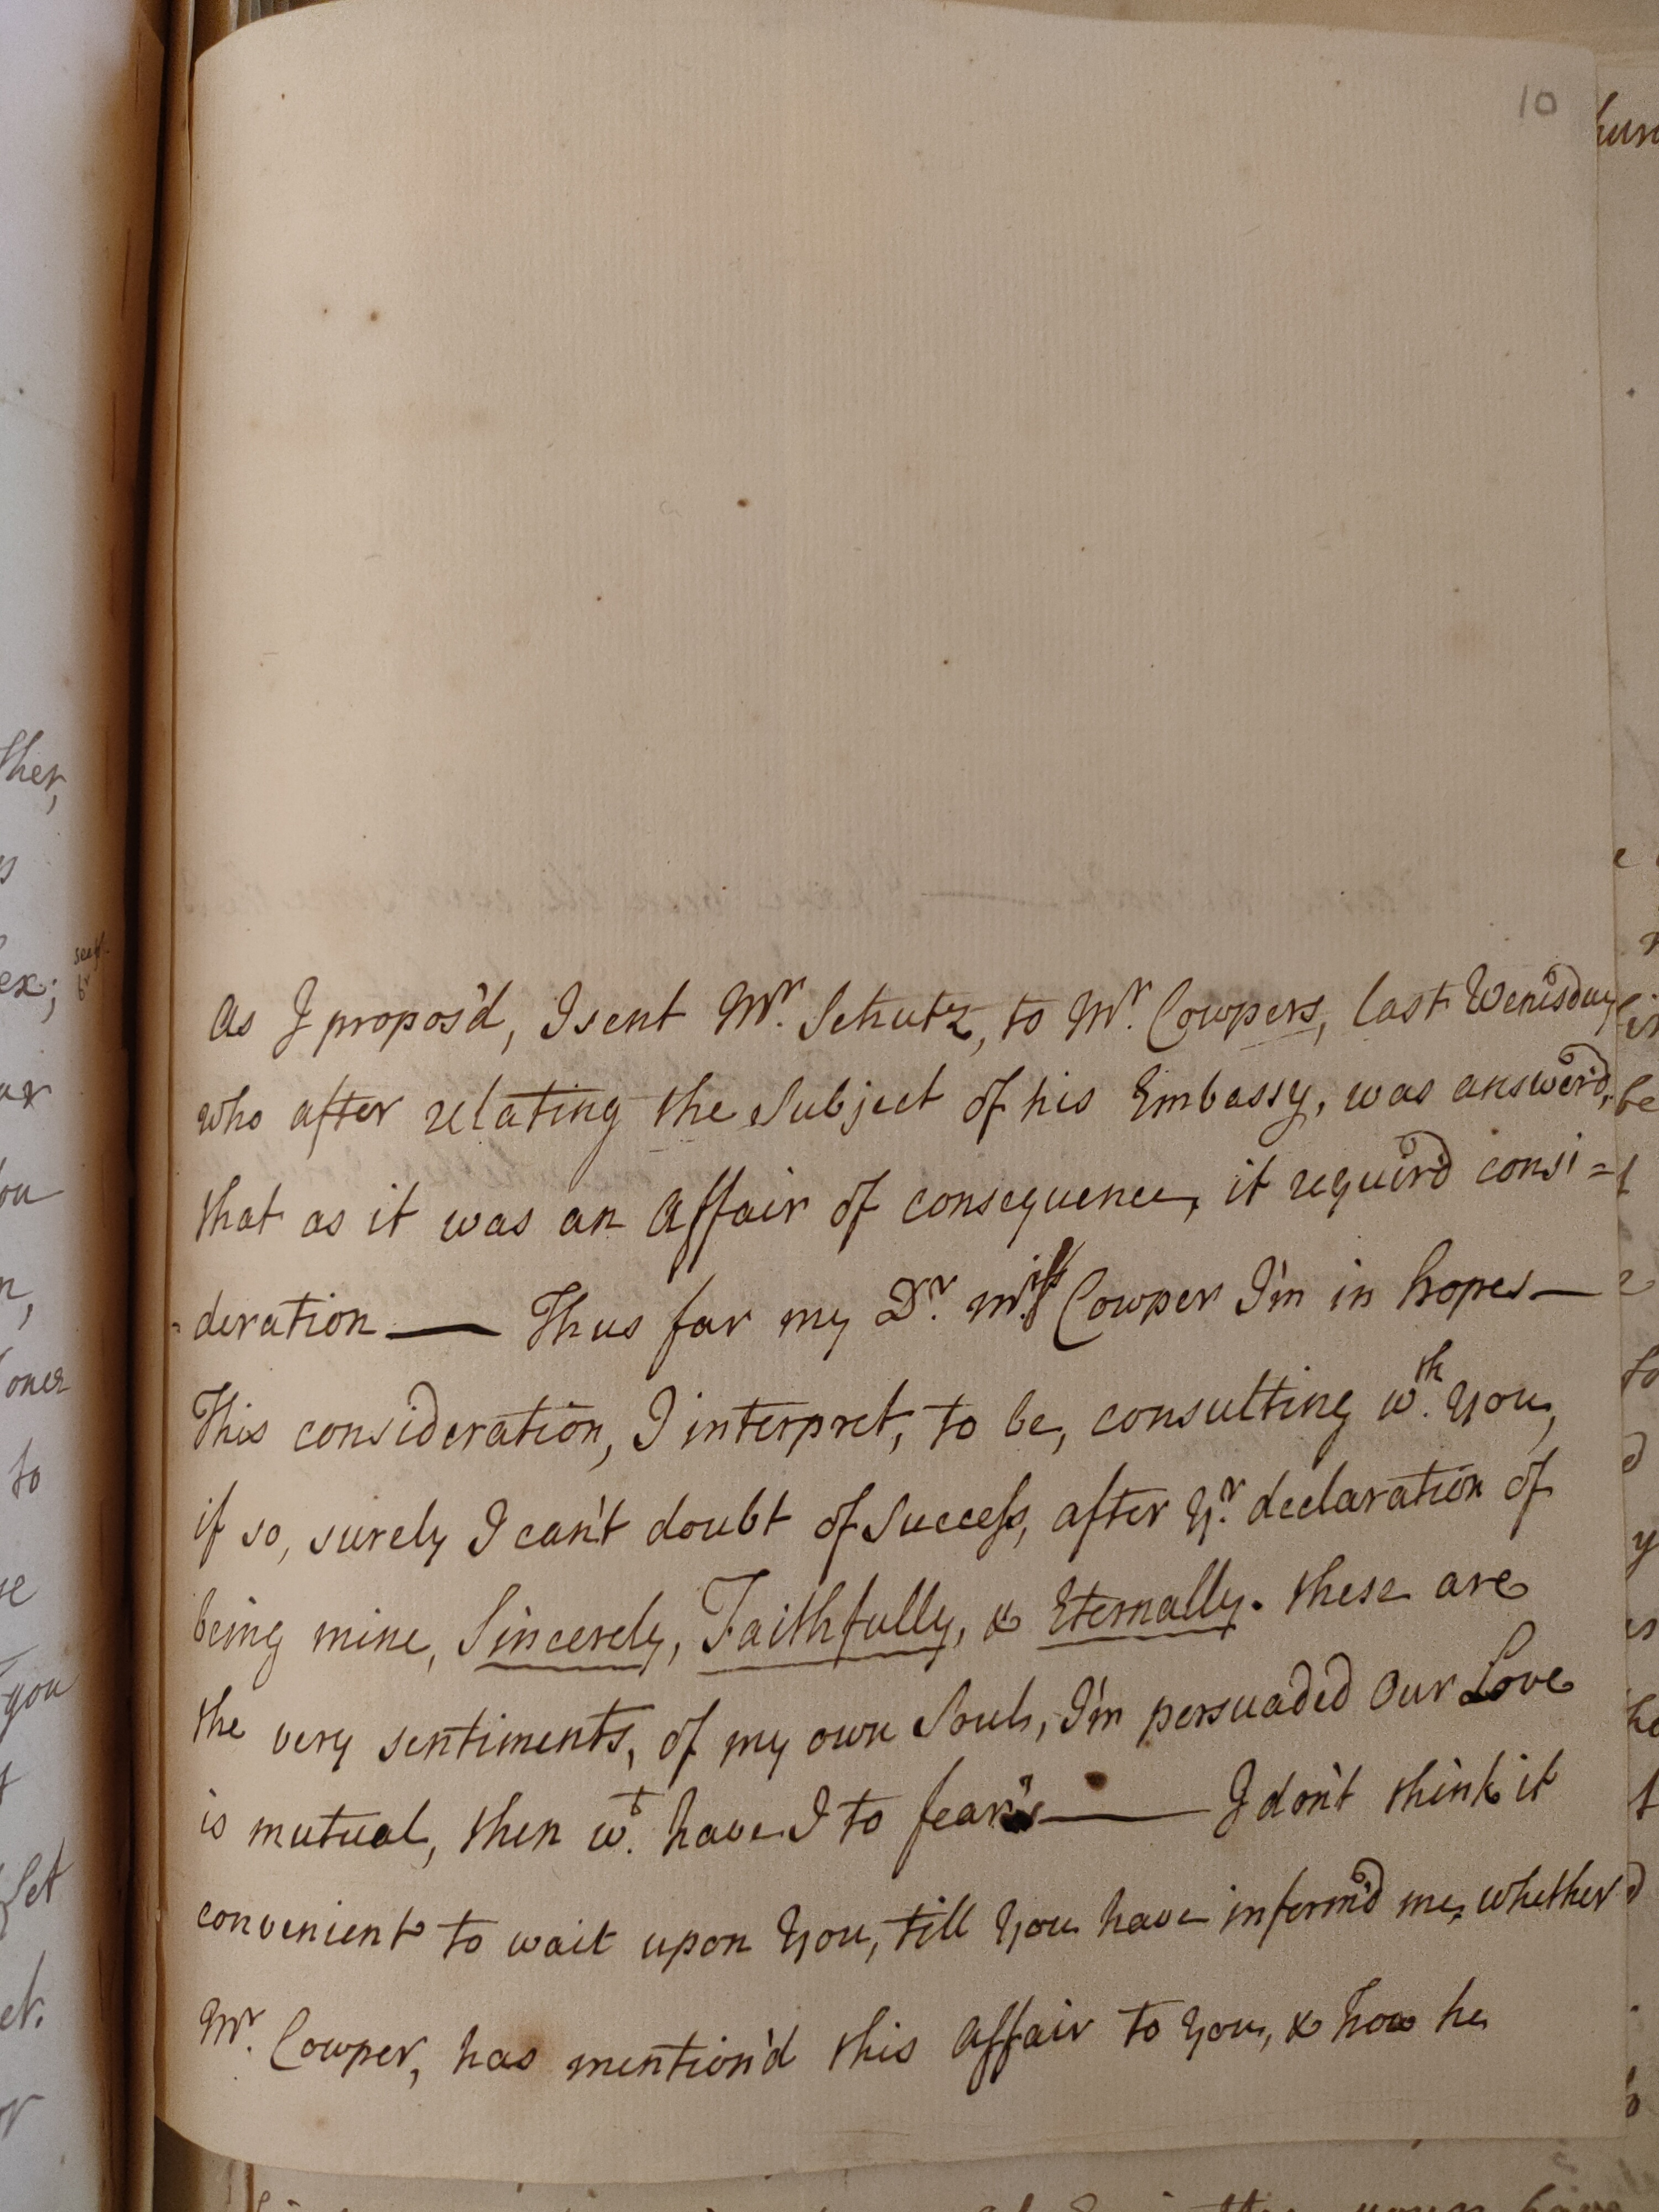 10
As I propos'd, I sent Mr. Schutz, to Mr. Cowpers, last Wenisday
who after relating the Subject of his Embassy, was answer'd,
that as it was an affair of consequence, it requir'd consi=
-deration — Thus far my Dr. Miss Cowper I'm in hopes —
This consideration, I interpret, to be, consulting wth. You,
if so, surely I can't doubt of Success, after Yr. declaration of
being mine, Sincerely, Faithfully, & Eternally. these are
the very sentiments, of my own Soul, I'm persuaded Our Love
is mutual, then wt. have I to fear — I don't think it
convenient to wait upon You, till You have inform'd me, whether
Mr. Cowper, has mention'd this affair to You, & how he
ther,
ex;
ou
n,
to
se
you
Set
et.